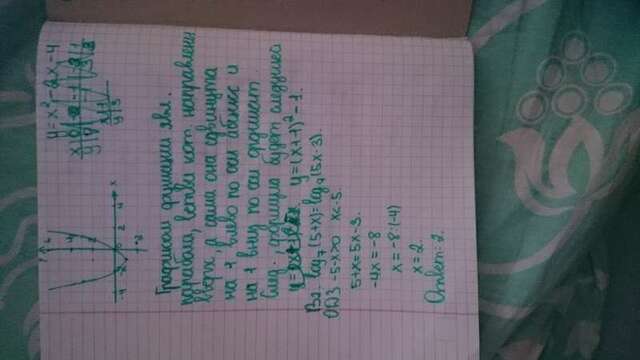 y = x² - 2x - 4
Графиком функции явл.
парабола, ветви кот. направлены
вверх, а сама она сдвинута
на 1 влево по оси абсцисс и
на 1 вниз по оси ординат
след. формула будет следующей
y = (x+1)² - 1.
B2. log₇(5+x) = log₇(5x-3).
ОДЗ -5-x>0 x<-5.
5+x=5x-3.
-4x=-8
x=-8:(-4)
x=2.
Ответ: 2.